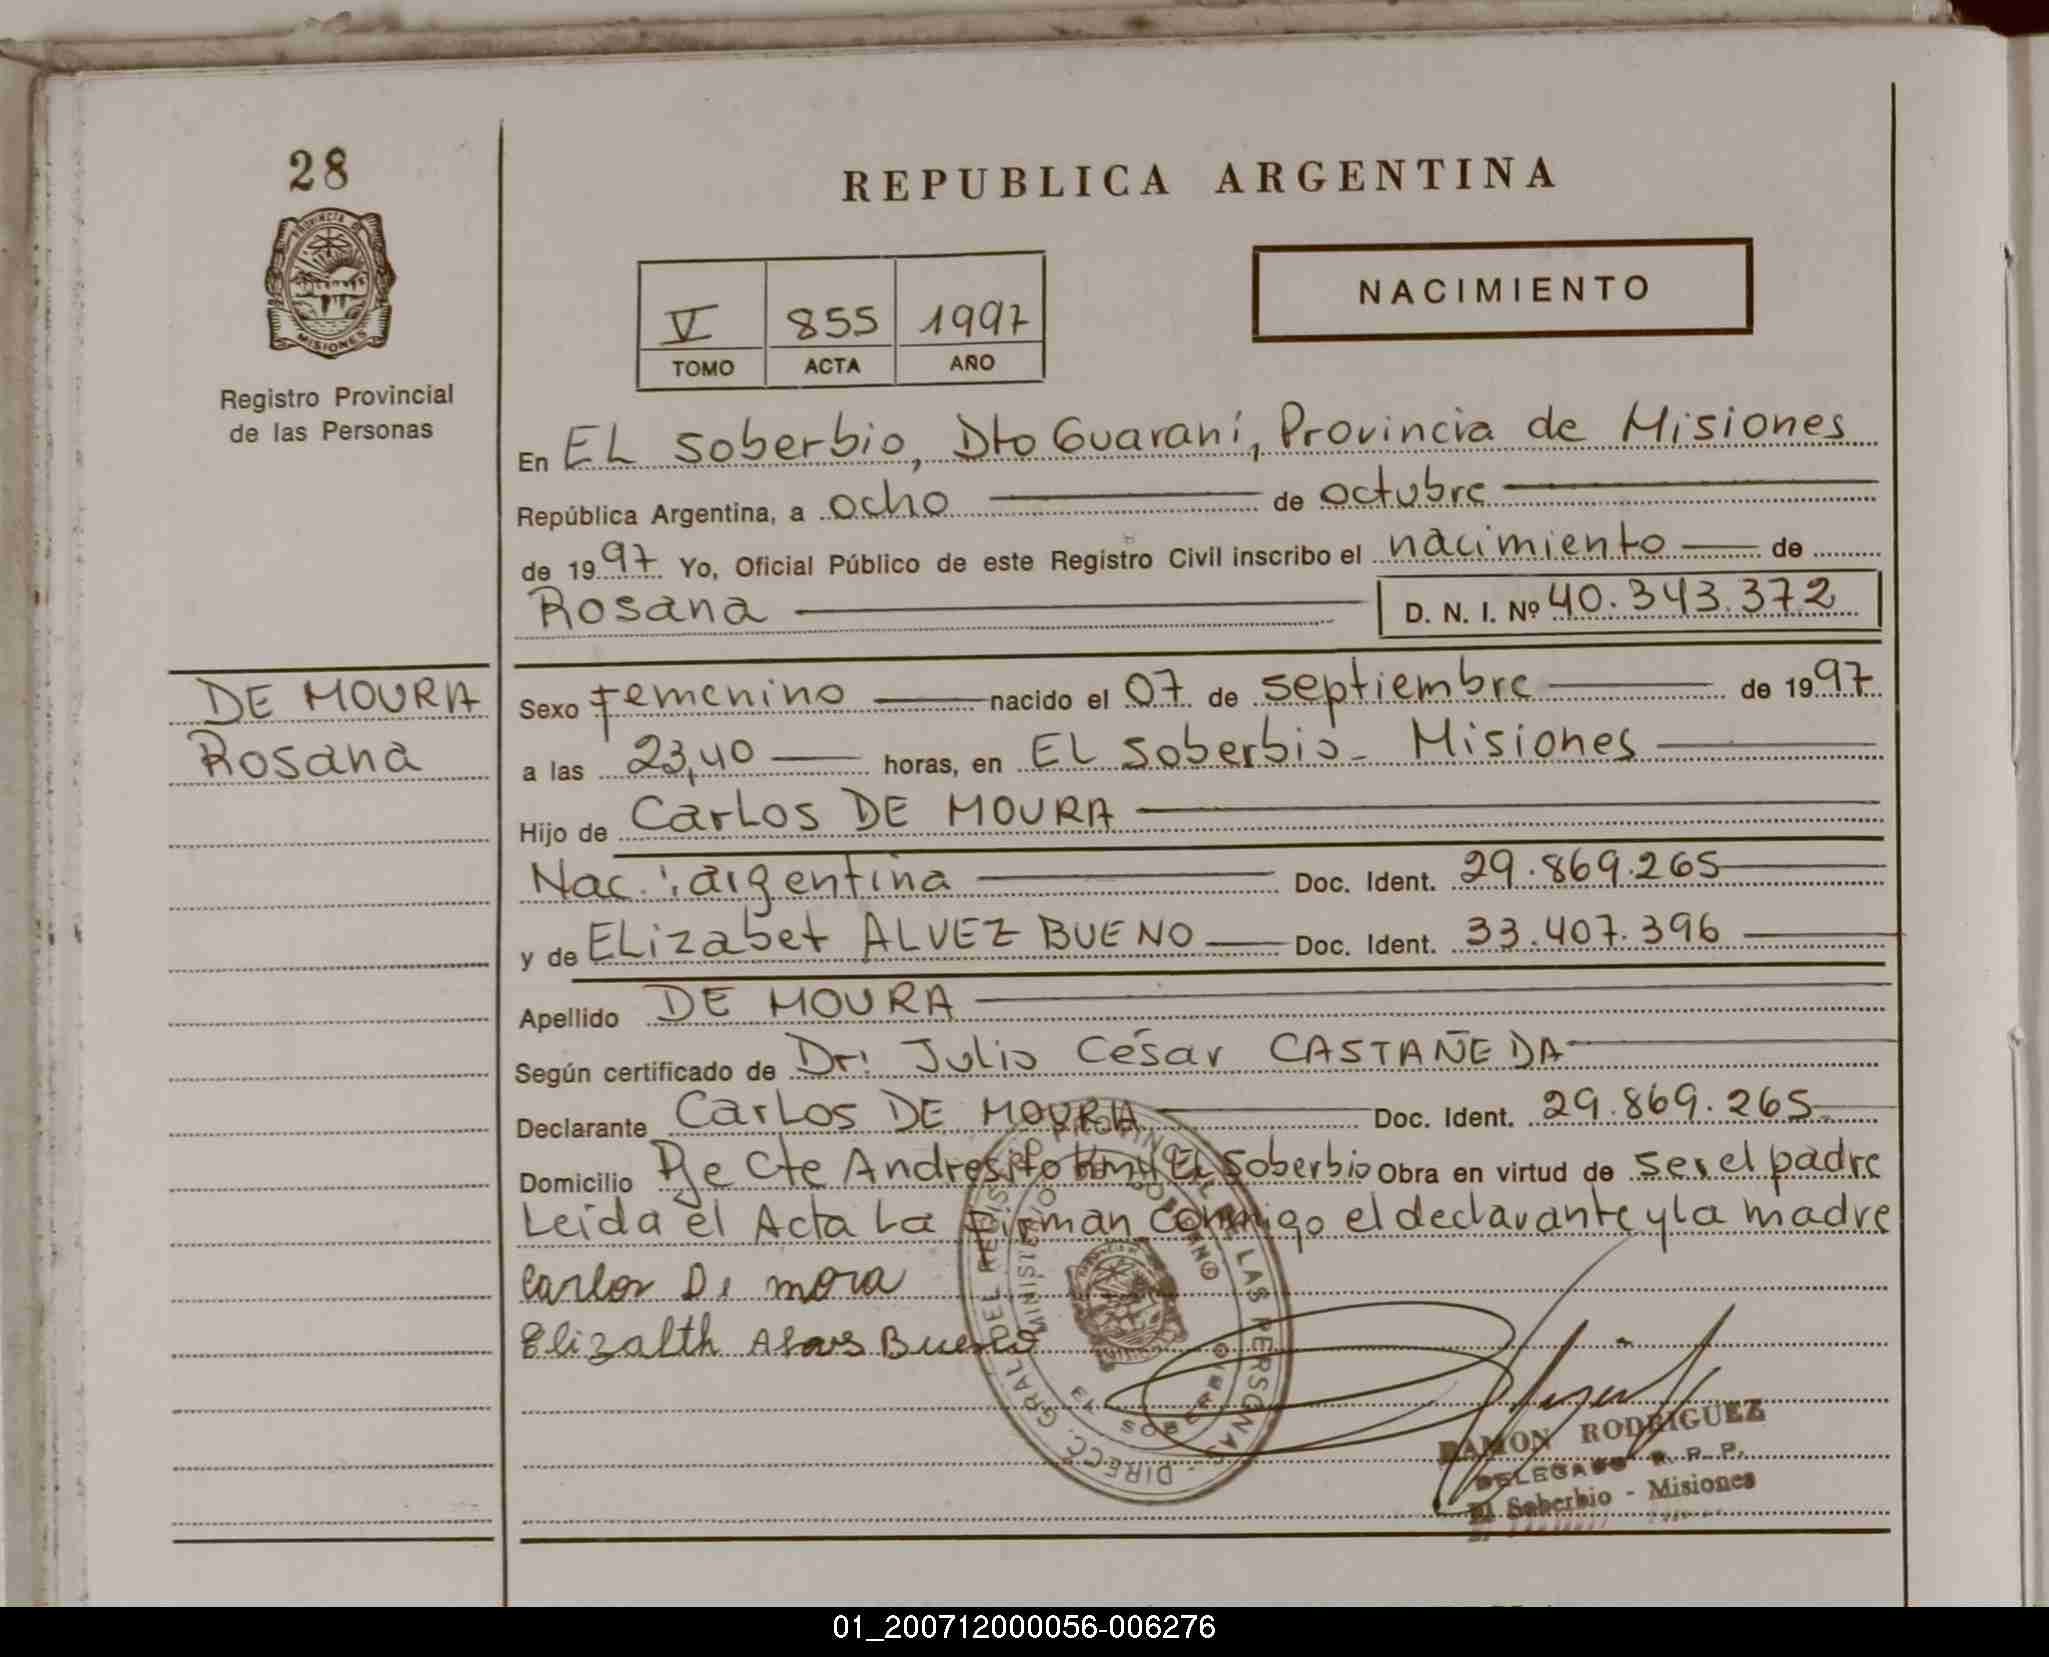 28
PROVINCIA DE
MISIONES
Registro Provincial
de las Personas
DE MOURA
Rosana
REPUBLICA ARGENTINA
V 855 1997
TOMO ACTA AÑO
NACIMIENTO
En EL Soberbio, Dto Guaraní, Provincia de Misiones
República Argentina, a ocho de octubre
de 1997 Yo, Oficial Público de este Registro Civil inscribo el nacimiento de
Rosana D. N. I. Nº 40.343.372
Sexo Femenino nacido el 07 de septiembre de 1997
a las 23,40 horas, en EL Soberbio - Misiones
Hijo de Carlos DE MOURA
Nac.: argentina Doc. Ident. 29.869.265
y de ELizabet ALVEZ BUENO Doc. Ident. 33.407.396
Apellido DE MOURA
Según certificado de Dr: Julio César CASTAÑEDA
Declarante Carlos DE MOURA Doc. Ident. 29.869.265
Domicilio Pje Cte Andresito Km 4 EL Soberbio Obra en virtud de ser el padre
Leída el Acta La Firman conmigo el declarante y la madre
Carlos De mora
Elizalth Bueno
DIRECC. GRAL DEL REGISTRO PROVINCIAL DE LAS PERSONAS
MINISTERIO DE GOBIERNO
EL SOBERBIO
RAMON RODRIGUEZ
DELEGADO R. P. P.
El Soberbio - Misiones
01_200712000056-006276